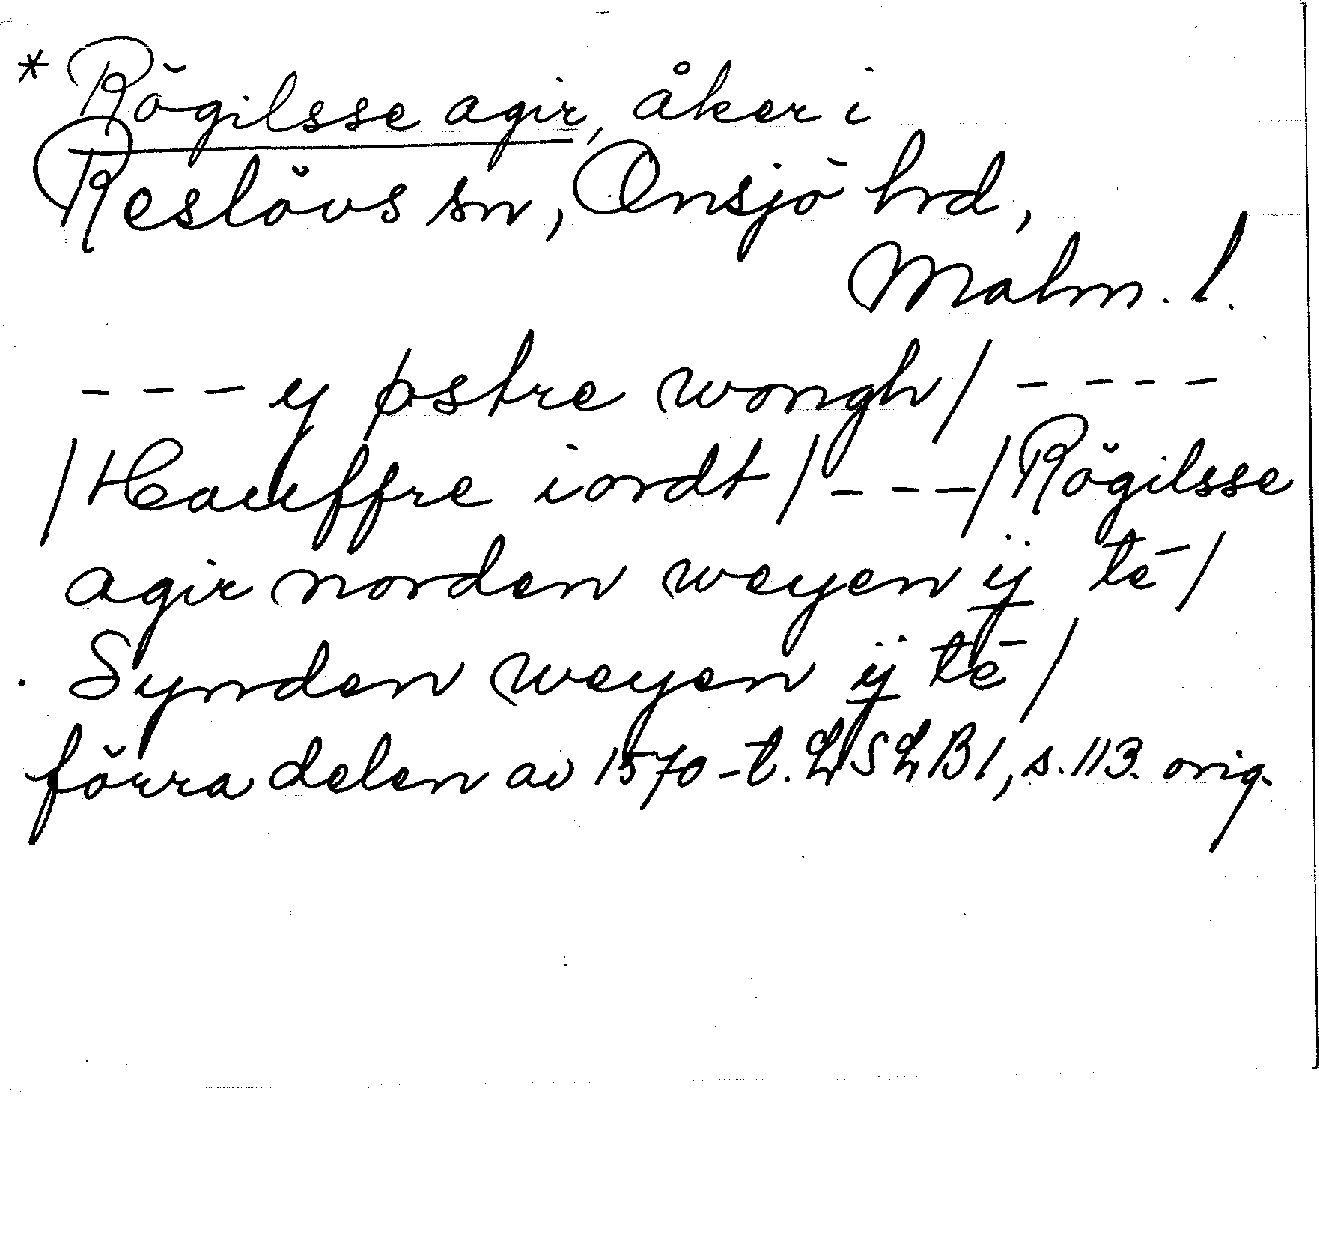 * Rögilsse agir, åker i
Reslövs sn, Onsjö hrd,
Malm. l.
- - - y østre wongh/ - - - -
/Hauffre iordt/ - - -/Rögilsse
agir norden weyen ij tē/
Synden weyen ij tē/
förra delen av 1570-t. LSLB1, s. 113. orig.